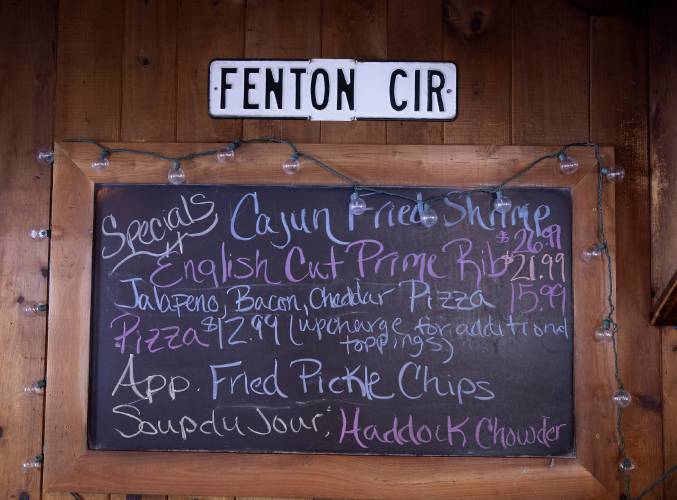 FENTON CIR
Specials Cajun Fried Shrimp
$26.99
English Cut Prime Rib $21.99
Jalapeno, Bacon, Cheddar Pizza 15.99
Pizza $12.99 (upcharge for additional
toppings)
App. Fried Pickle Chips
Soup du Jour: Haddock Chowder